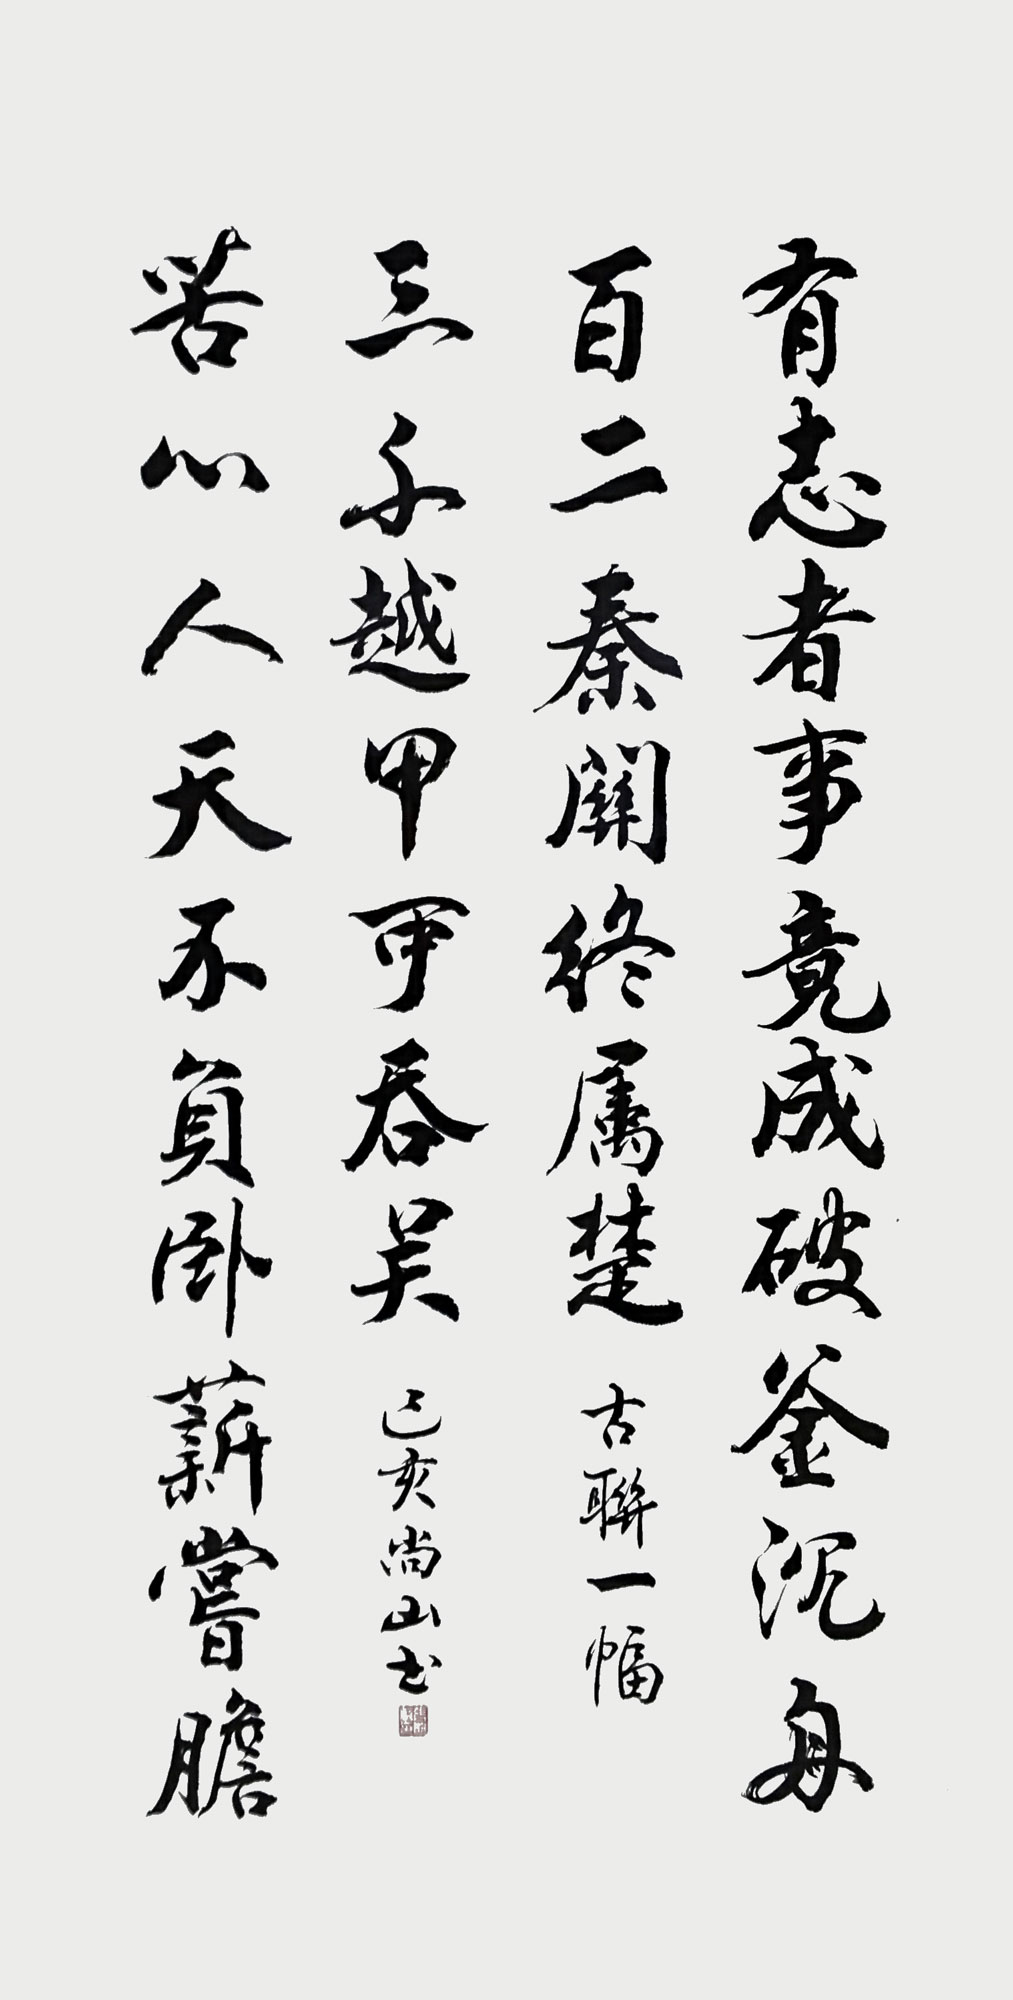 有志者事竟成破釜沉舟
百二秦關終属楚
苦心人天不負卧薪嘗膽
三千越甲可吞吴
古聯一幅
己亥尚山书